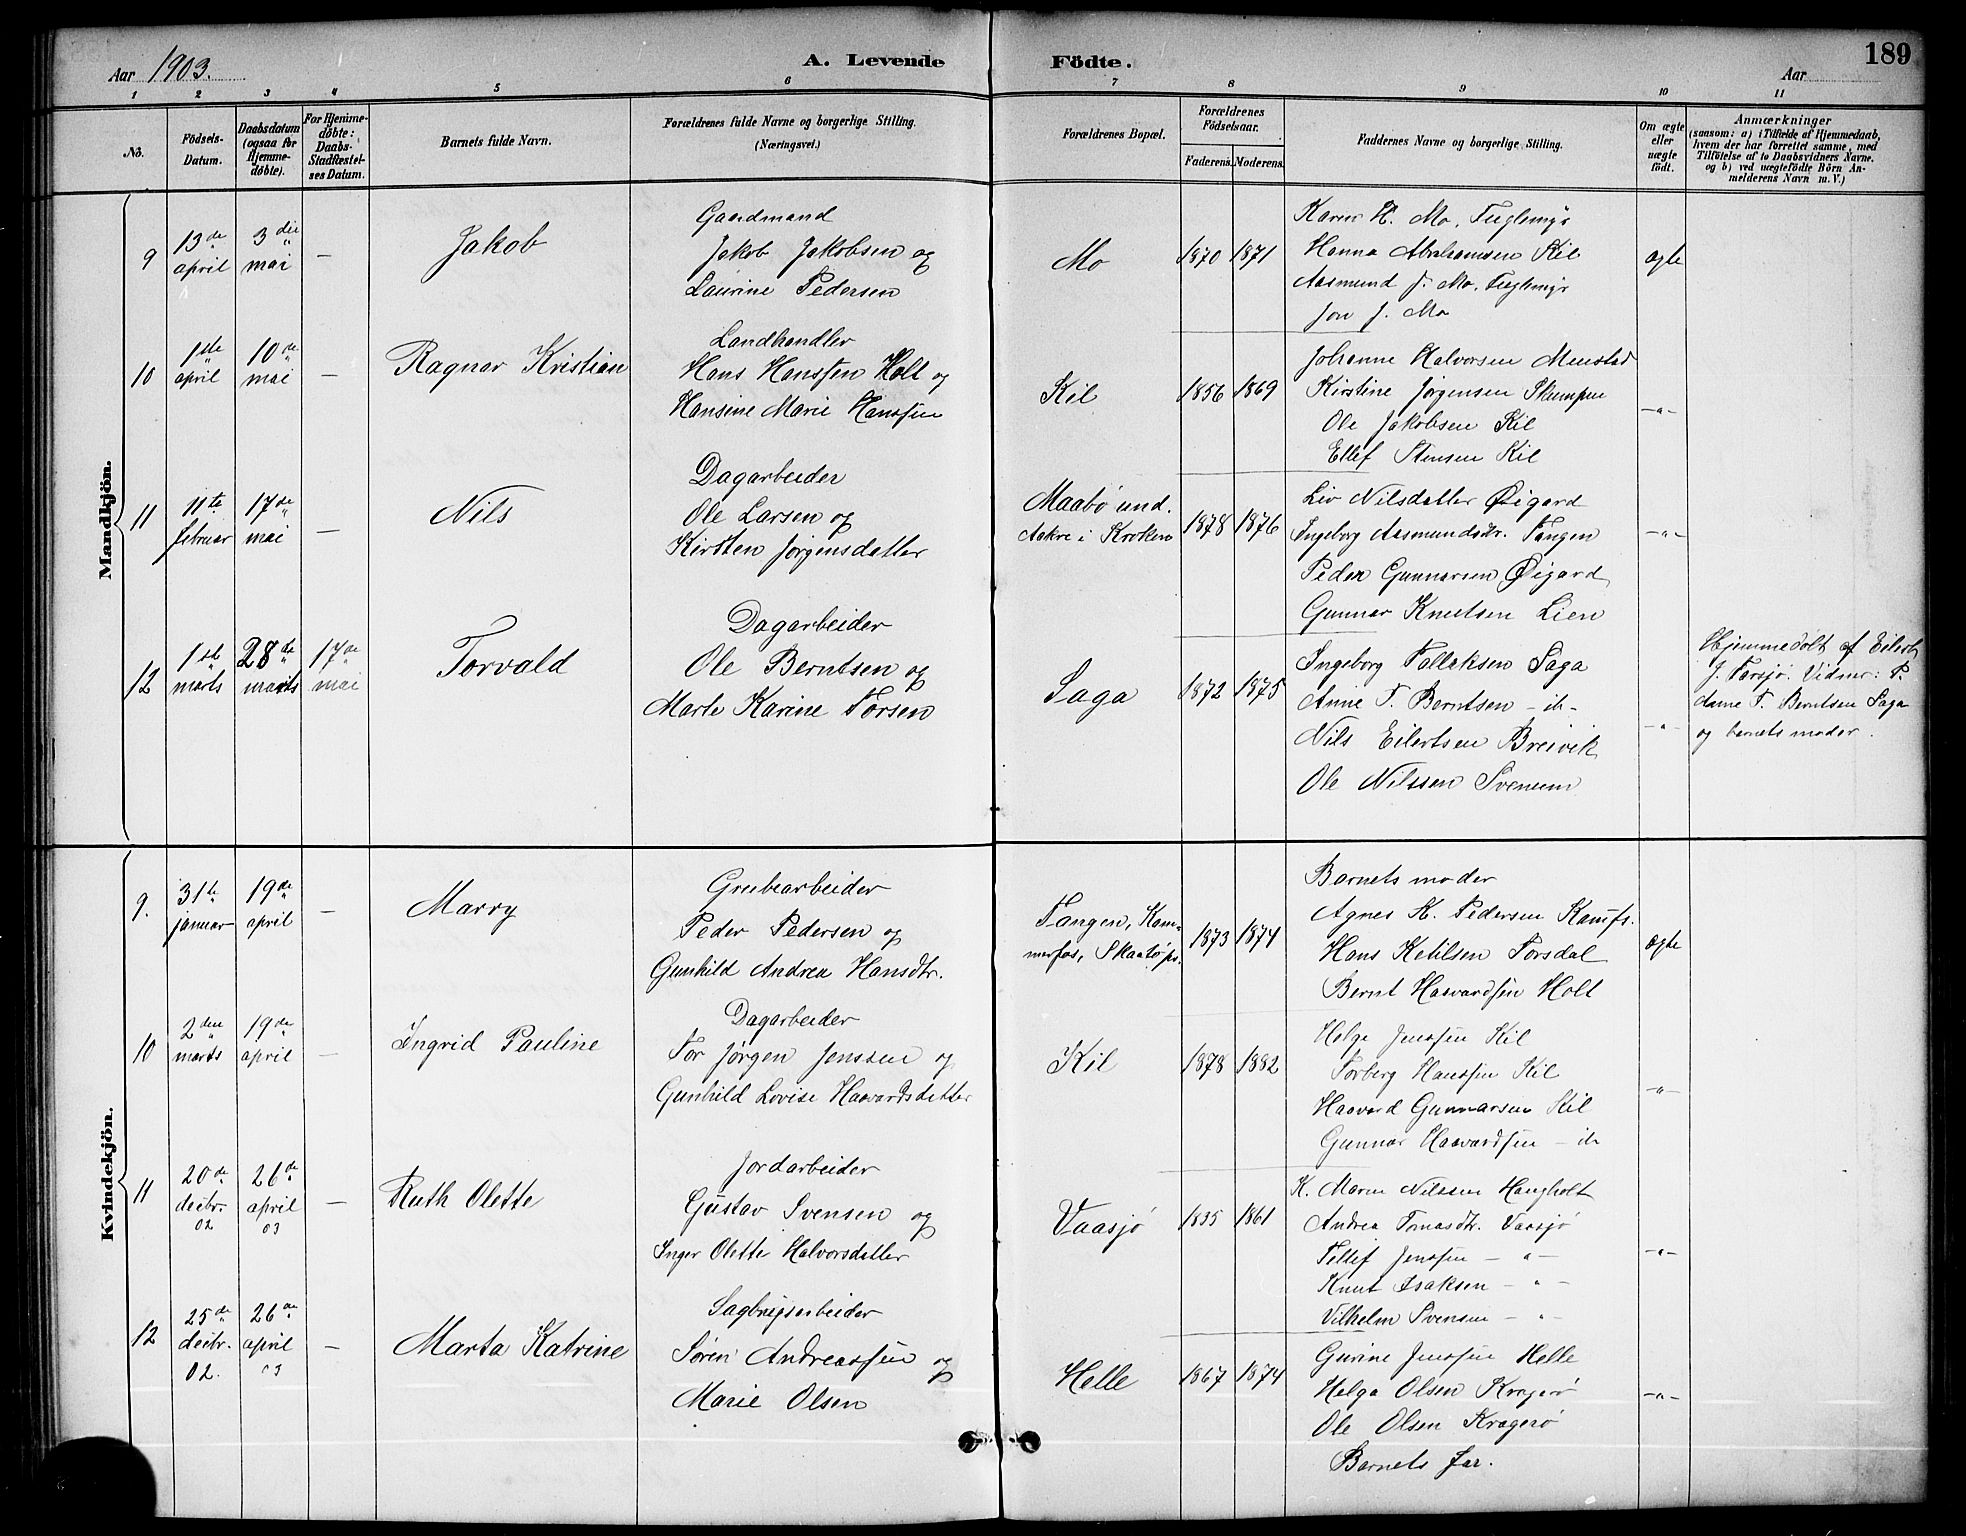 Aar 1903.
A. Levende Födte.
Aar
189
1 2 3 4 5 6 7 8 9 10 11
No.
Födsels-Datum.
Daabsdatum (ogsaa for Hjemmedøbte).
For Hjemmedøbte: Daabs-Stadfæstelses Datum.
Barnets fulde Navn.
Forældrenes fulde Navne og borgerlige Stilling. (Næringsvei.)
Forældrenes Bopæl.
Forældrenes Födselsaar.
Faderens. Moderens.
Faddernes Navne og borgerlige Stilling.
Om ægte eller uægte födt.
Anmærkninger
(saasom: a) i Tilfælde af Hjemmedaab, hvem der har forrettet samme, med Tilföielse af to Daabsvidners Navne, og b) ved uægtefödte Börn Anmelderens Navn m. V.)
Mandkjön.
9
13de april
3die mai
–
Jakob
Gaardmand
Jakob Jakobsen og
Laurine Pedersen
Mo
1870 1871
Karen H. Mo,
Hanna Abrahamsen Kil
Aasmund J. Mo,
Jon J. Mo
ægte
10
1ste april
10de mai
–
Ragnar Kristian
Landhandler
Hans Hanssen Holt og
Hansine Marie Hanssen
Kil
1856 1869
Johanne Halvorsen Menstad
Kirstine Jørgensen
Ole Jakobsen Kil
Ellef Stensen Kil
–"–
11
11te februar
17de mai
–
Nils
Dagarbeider
Ole Larsen og
Kirsten Jørgensdatter
Maabø und.
Aakre i Kroken
1878 1876
Liv Nilsdatter Øigard
Ingeborg Aasmundsdtr. Tangen
Peder Gunnarsen Øigard
Gunnar Knutsen Lien
–"–
12
1ste marts
28de marts
17de mai
Torvald
Dagarbeider
Ole Berntsen og
Marte Karine Torsen
Saga
1872 1875
Ingeborg Tallaksen Saga
Anne T. Berntsen –ib–
Nils Eilertsen Breivik
Ole Nilssen Svenum
–"–
Hjemmedøbt af Eilert
J. Farsjø. Vidner:
T. Berntsen Saga
og barnets moder.
Kvindekjön.
9.
31te januar
19de april
–
Marry
Grubearbeider
Peder Pedersen og
Gunhild Andrea Hansdtr.
Tangen, Kam-
merfos, Skaatøps.
1873 1874
Barnets moder
Agnes K. Pedersen Kamfs.
Hans Ketilsen Torsdal
Bernt Haavardsen Holt
ægte
10
2den marts
19de april
–
Ingrid Pauline
Dagarbeider
Tor Jørgen Jenssen og
Gunhild Lovise Haavardsdatter
Kil
1878 1882
Helge Jenssen Kil
Torberg Hanssen Kil
Haavard Gunnarsen Kil
Gunnar Haavardsen – ib
–"–
11
20de decbr. 02
26de april 03
–
Ruth Olette
Jordarbeider
Gustav Svensen og
Inger Olette Halvorsdatter
Vaasjø
1835 1861
K. Maren Nilssen Haugholt
Andrea Tomasdtr. Vaasjø
Tellef Jenssen – " –
Knut Isaksen – " –
Vilhelm Svensen – " –
–"–
12
25de decbr. 02.
26de april 03
–
Marta Katrine
Sagbrugsarbeider
Søren Andreassen og
Marie Olsen
Helle
1867 1874
Gurine Jenssen Helle
Helga Olsen Kragerø
Ole Olsen Kragerø
Barnets far.
–"–